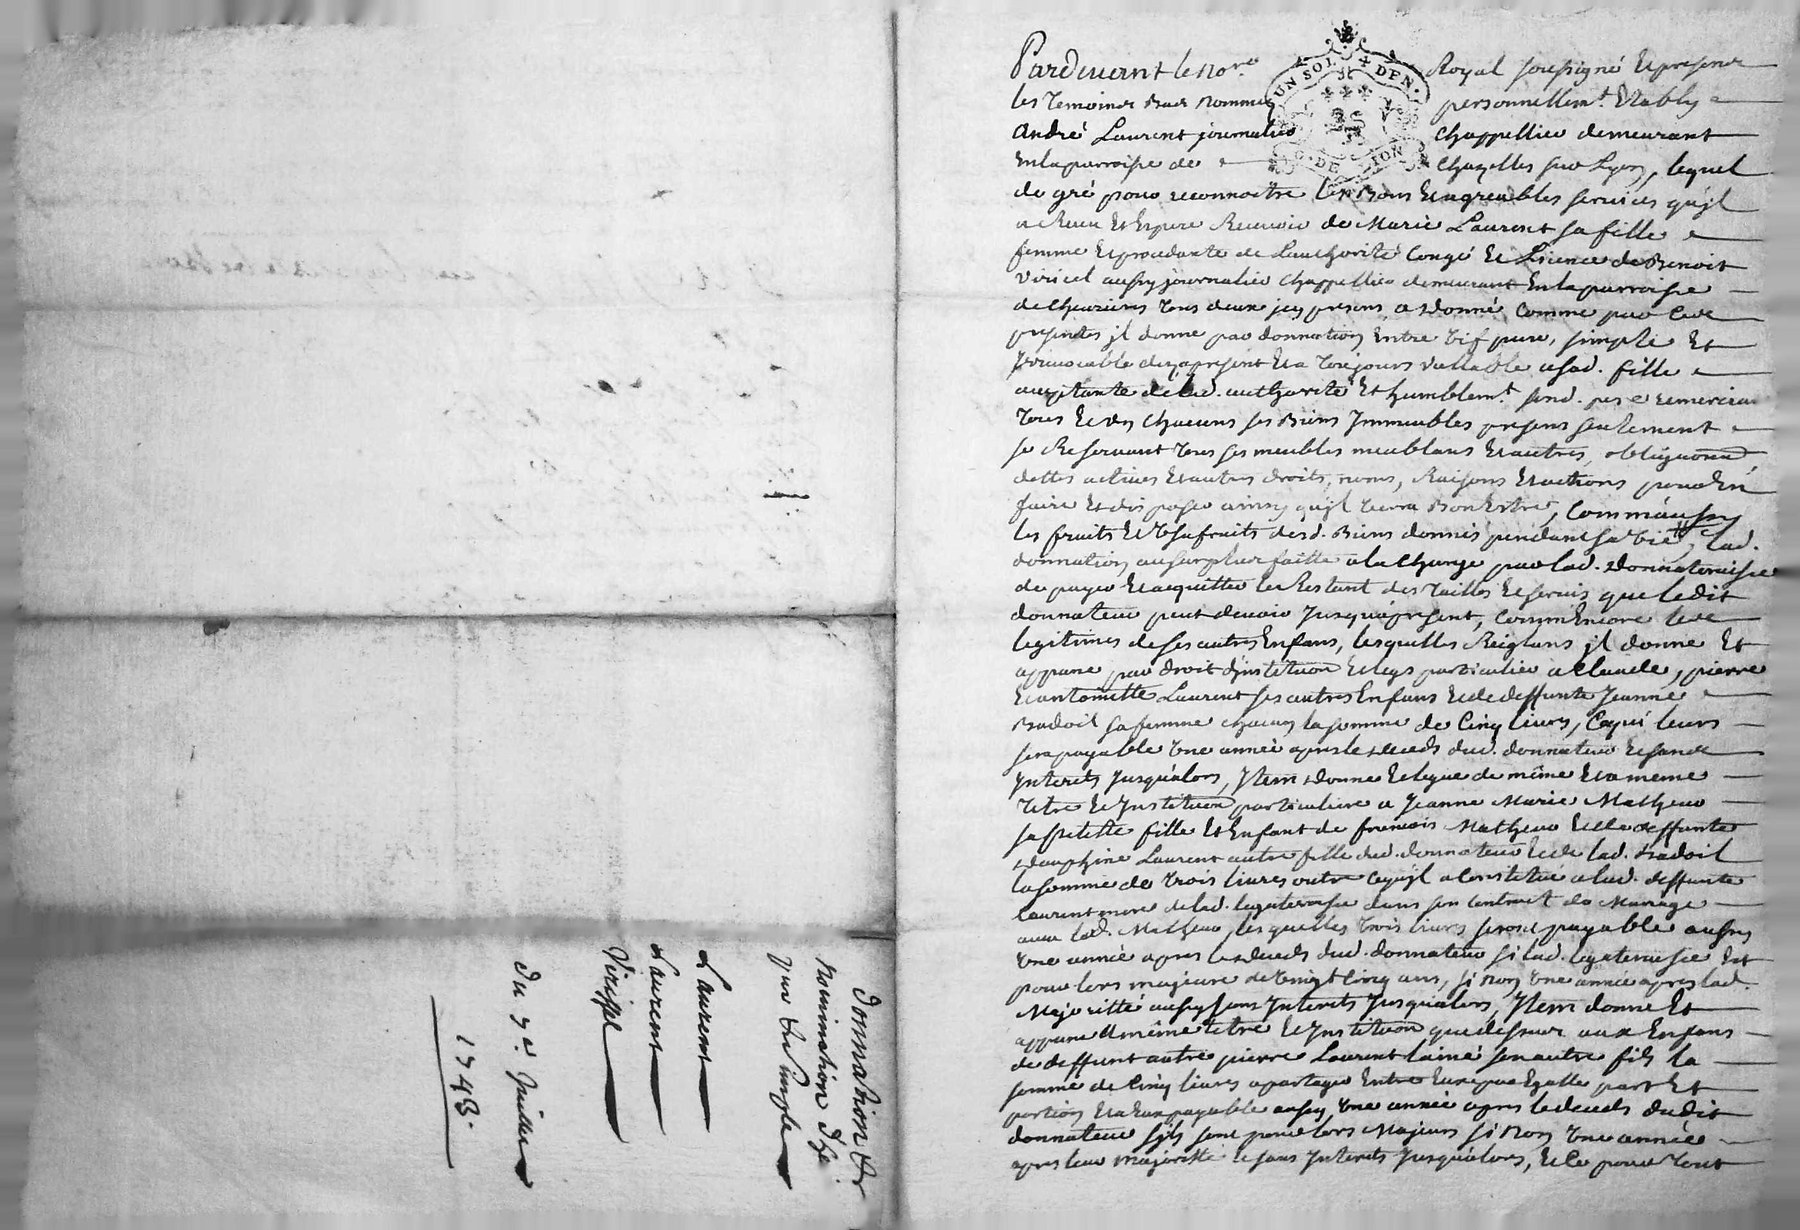 Pardevant le No.re Royal soussigné Et presens
les Temoins Bas Nommés personnellem.t Etably
André Laurent journalier Chappellier demeurant
En la parroisse de Chazelles sur Lyon, lequel
de gré pour reconnoitre les Bons Et agreables services qu'jl
a Receu Et Espere Recevoir de Marie Laurent sa fille
femme Et procedante de L'authorité Congé Et Licence de Benoit
Viricel aussy journalier Chappellier demeurant En la parroisse
de Chevrieres Tous deux jcy presens, a donné, Comme par Ces
presentes jl donne par donnation Entre Vif pure, simple Et
Jrrevocable dez apresent Et a Toujours Vallable a sad. fille
acceptante de lad. authorité Et humblem.t sond. pere remerciant
Tous Et Un Chacuns ses Biens Jmmeubles presens seulement
se Reservant Tous ses meubles meublans Et autres, obligations
dettes actives Et autres droits, noms, Raisons Et actions pour En
faire Et disposer ainsy qu'jl Verra Bon Estre, Comm'aussy
les fruits Et Usufruits desd. Biens donnés pendant sa Vie, Lad.
donnation au surplus faitte a la Charge par lad. donnateraisse
de payer Et acquitter les Restant des Tailles Et servis que ledit
donnateur peut devoir Jusqu'apresent, Comm'Encore les
legitimes de ses autres Enfans, lesquelles Reiglans jl donne Et
appane par droit d'jnstitution Et legs particulier a Claude, pierre
Et antoinette Laurent ses autres Enfans Et de deffunte Jeanne
Badoil sa femme chacun la somme de Cinq livres, Ce qui leurs
sera payable Une année apres le deceds dud. donnateur Et sans
Jnterets Jusqu'alors, Jtem donne Et legue de même Et a meme
Titre Et Jnstitution particuliere a Jeanne Marie Matheur
sa petitte fille Et Enfant de francois Matheur Et de deffunte
dauphine Laurent autre fille dud. donnateur Et de lad. Badoil
la somme de Trois livres outre Ce qu'jl a Constitué a lad. deffunte
Laurent mere de lad. legateraisse dans son Contract de Mariage
avec led. Matheur, lesquelles Trois livres seront payable aussy
Une année apres le deceds dud. donnateur si lad. legateraisse Est
pour lors majeure de Vingt Cinq ans, si Non Une année apres lad.
Majoritté aussy sans Jnterets Jusqu'alors, Jtem donne Et
appane a même titre Et Jnstitution que dessus aux Enfans
de deffunt autre pierre Laurent L'ainé son autre fils la
somme de Cinq livres a partager Entre Eux par Egalle part Et
portion Et a Eux payable aussy Une année apres le deceds dudit
donnateur s'jls sont pour lors Majeurs si Non Une année
apres leur majoritté Et sans Jnterets Jusqu'alors, Et Ce pour Tout
donnation Et
nomination
Laurent
Laurent
Virissel
Du 7e Juillet
1743.